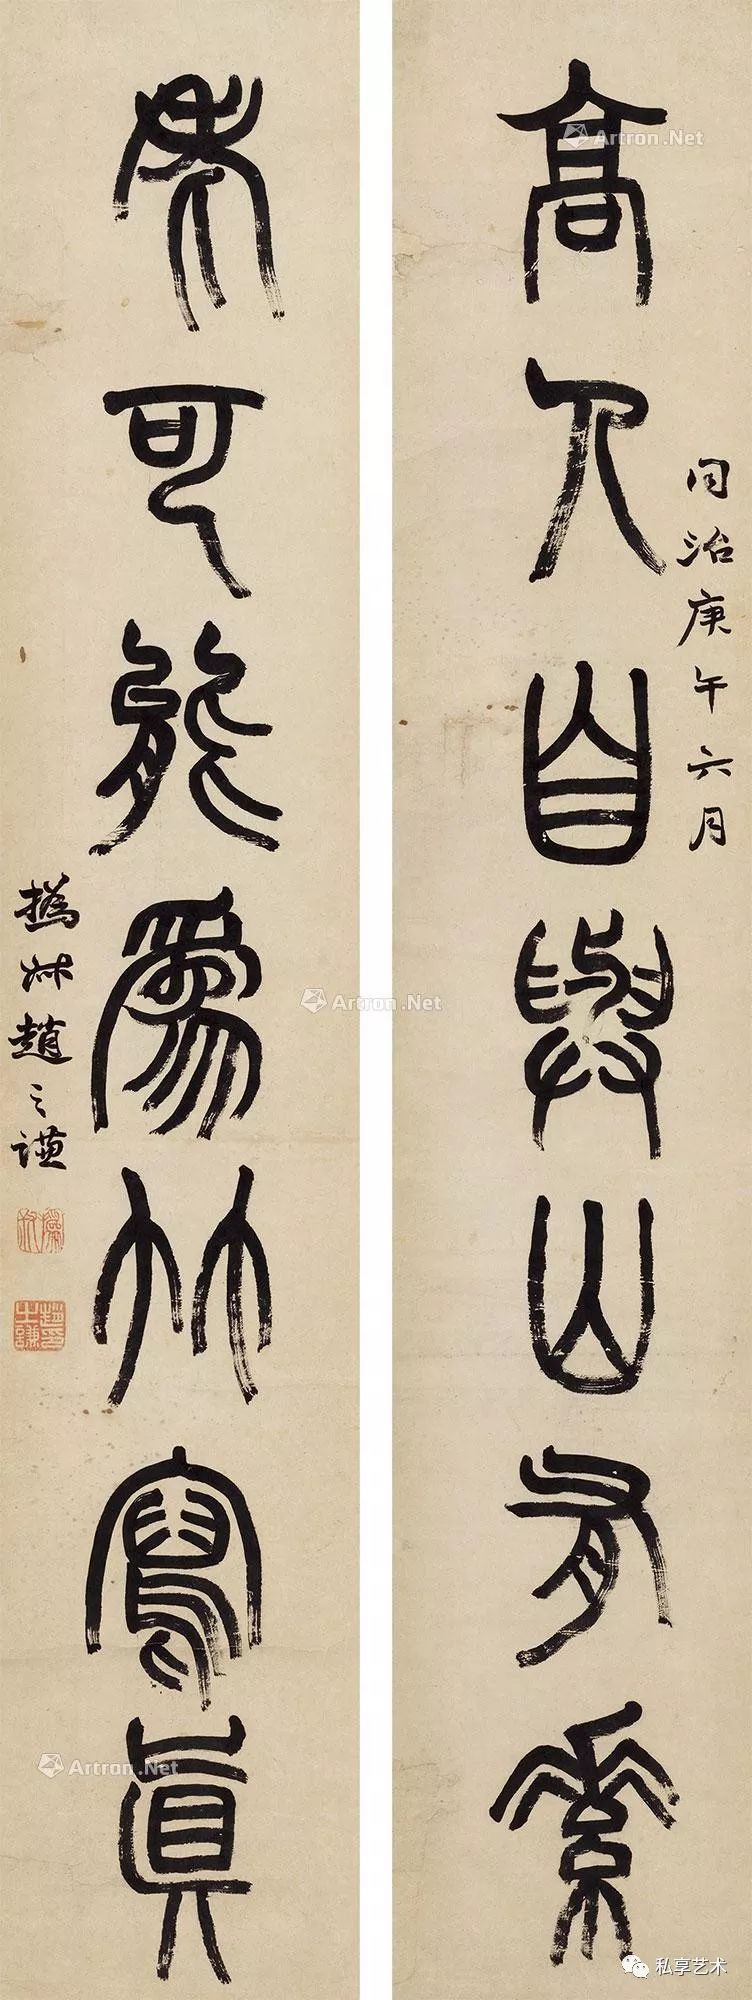 高人自與山有素
同治庚午六月
老可能為竹寫真
撝叔趙之謙
撝叔
趙之謙印
Artron.Net
Artron.Net
Artron.Net
私享艺术